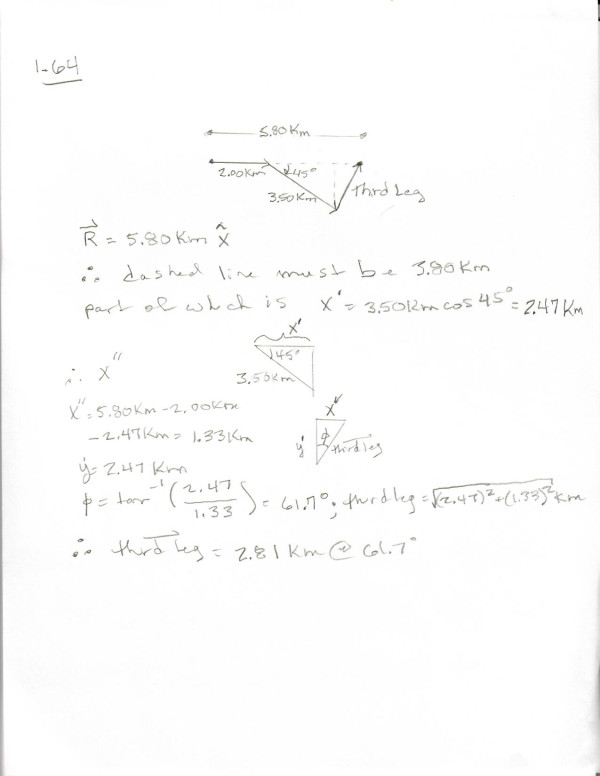 1-64
5.80 Km
2.00Km 45°
3.50Km third Leg
R⃗ = 5.80 Km x̂
∴ dashed line must be 3.80Km
part of which is x' = 3.50Km cos 45° = 2.47 Km
x'
∴ x''
45°
3.50Km
x'' = 5.80 Km - 2.00Km
- 2.47Km = 1.33 Km
x''
y' ϕ third leg
y' = 2.47 Km
ϕ = tan⁻¹ (2.47/1.33) = 61.7° ; third leg = √(2.47)² + (1.33)² Km
∴ third leg = 2.81 Km @ 61.7°